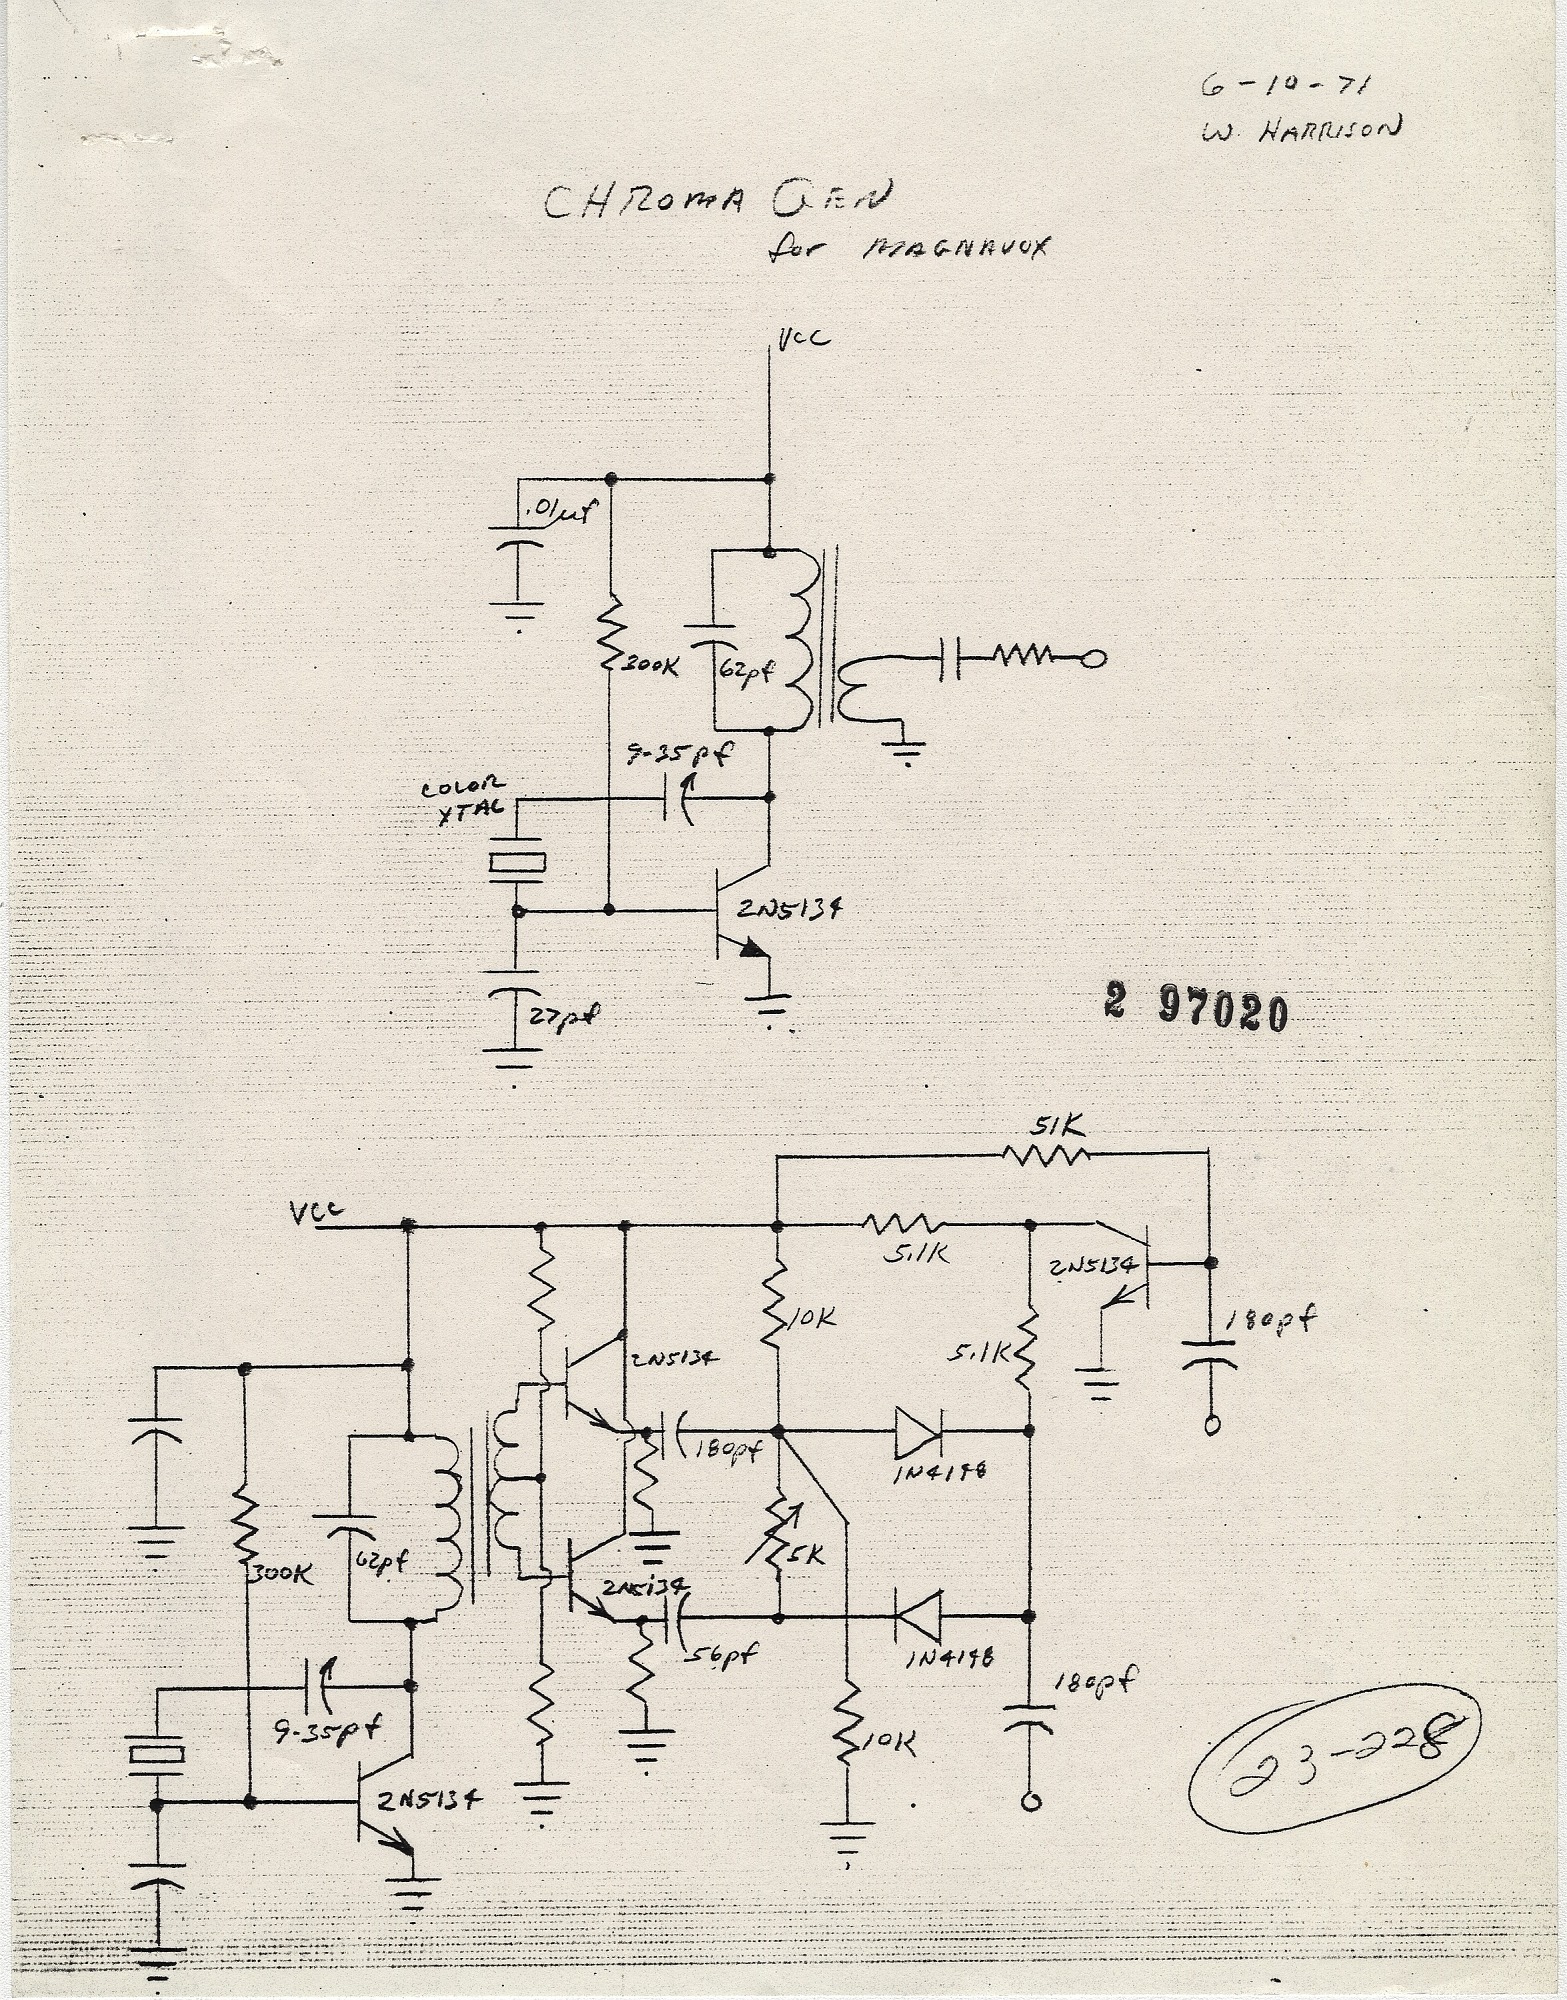 6-10-71
W. HARRISON
CHROMA GEN
for MAGNAVOX
VCC
.01uf
300K
62pf
9-35pf
COLOR
XTAL
2N5134
27pf
2 97020
51K
VCC
5.1K
2N5134
10K
180pf
5.1K
2N5134
180pf
1N4148
62pf
300K
5K
2N5134
56pf
1N4148
180pf
9-35pf
10K
23-228
2N5134